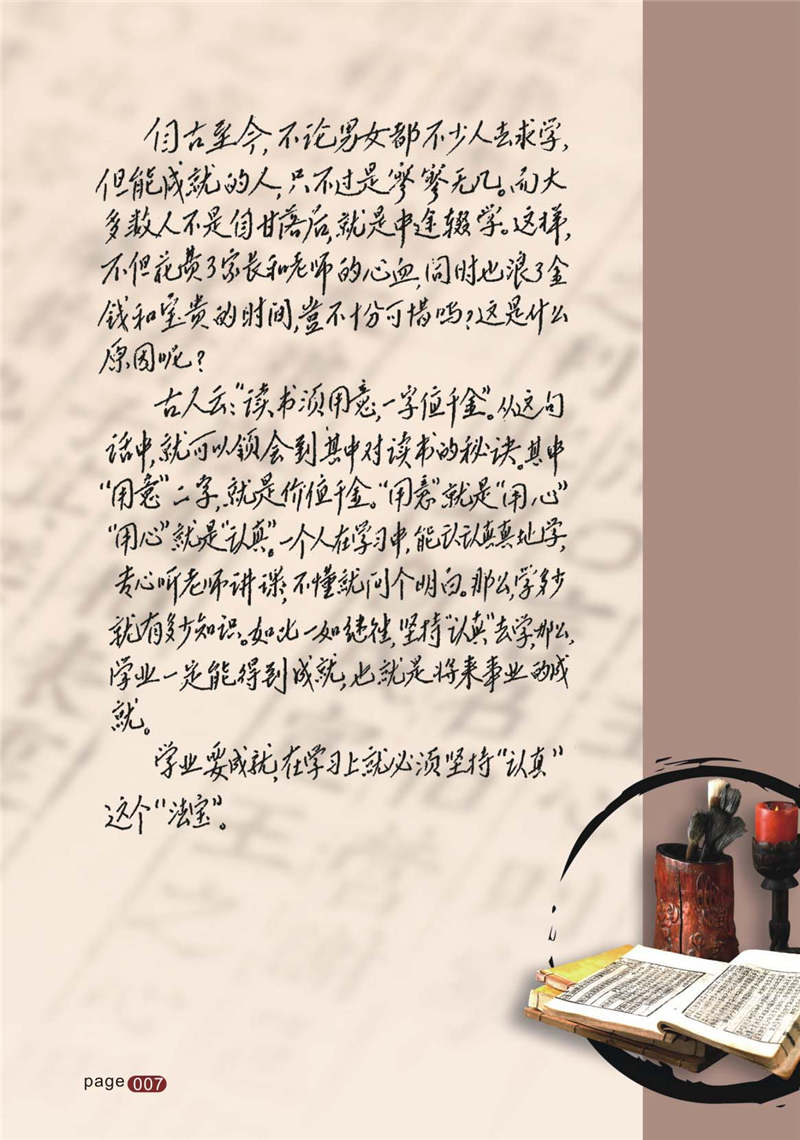 自古至今，不论男女都不少人去求学，
但能成就的人，只不过是寥寥无几。而大
多数人不是自甘落后，就是中途辍学。这样，
不但花费了家长和老师的心血，同时也浪了金
钱和宝贵的时间，岂不十分可惜吗？这是什么
原因呢？
古人云：“读书须用意，一字值千金”。从这句
话中，就可以领会到其中对读书的秘诀。其中
“用意”二字，就是价值千金。“用意”就是“用心”
“用心”就是“认真”。一个人在学习中，能认认真真地学，
专心听老师讲课，不懂就问个明白。那么，学多少
就有多少知识。如此一如继往，坚持“认真”去学，那么，
学业一定能得到成就，也就是将来事业的成
就。
学业要成就，在学习上就必须坚持“认真”
这个“法宝”。
page 007